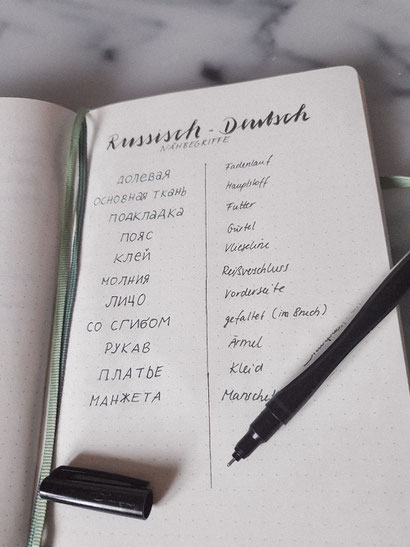 Russisch - Deutsch
NÄHBEGRIFFE
ДОЛЕВАЯ Fadenlauf
ОСНОВНАЯ ТКАНЬ Hauptstoff
ПОДКЛАДКА Futter
ПОЯС Gürtel
КЛЕЙ Vlieseline
МОЛНИЯ Reißverschluss
ЛИЦО Vorderseite
СО СГИБОМ gefaltet (im Bruch)
РУКАВ Ärmel
ПЛАТЬЕ Kleid
МАНЖЕТА